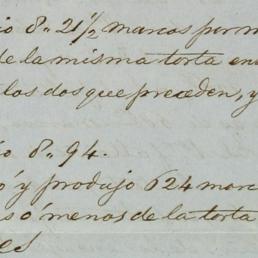 io 8" 21½ marcos por m
de la misma torta en
los dos que preceden, y

io 8" 94.
ó y produjo 624 marc
s ó menos de la torta
es